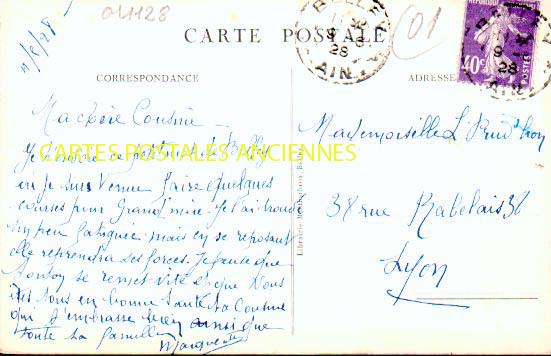 041128
01
11/8/28
CARTE POSTALE
BELLE
9 - 8
28
AIN
40c
POSTES
9
28
CORRESPONDANCE
ADRESSE
Ma chère Cousine
CARTES POSTALES ANCIENNES
Je ce petit mot de
ou je suis venue faire quelques
courses pour Grand'mère. Je l'ai trouvée
un peu fatiguée mais en se reposant
elle reprendra ses forces. Je pense que
se remet vite et que vous
êtes tous en bonne santé ta Cousine
qui t'embrasse bien ainsi que
toute la famille
Mademoiselle L.
38 rue Rabelais 38
Lyon
Librairie